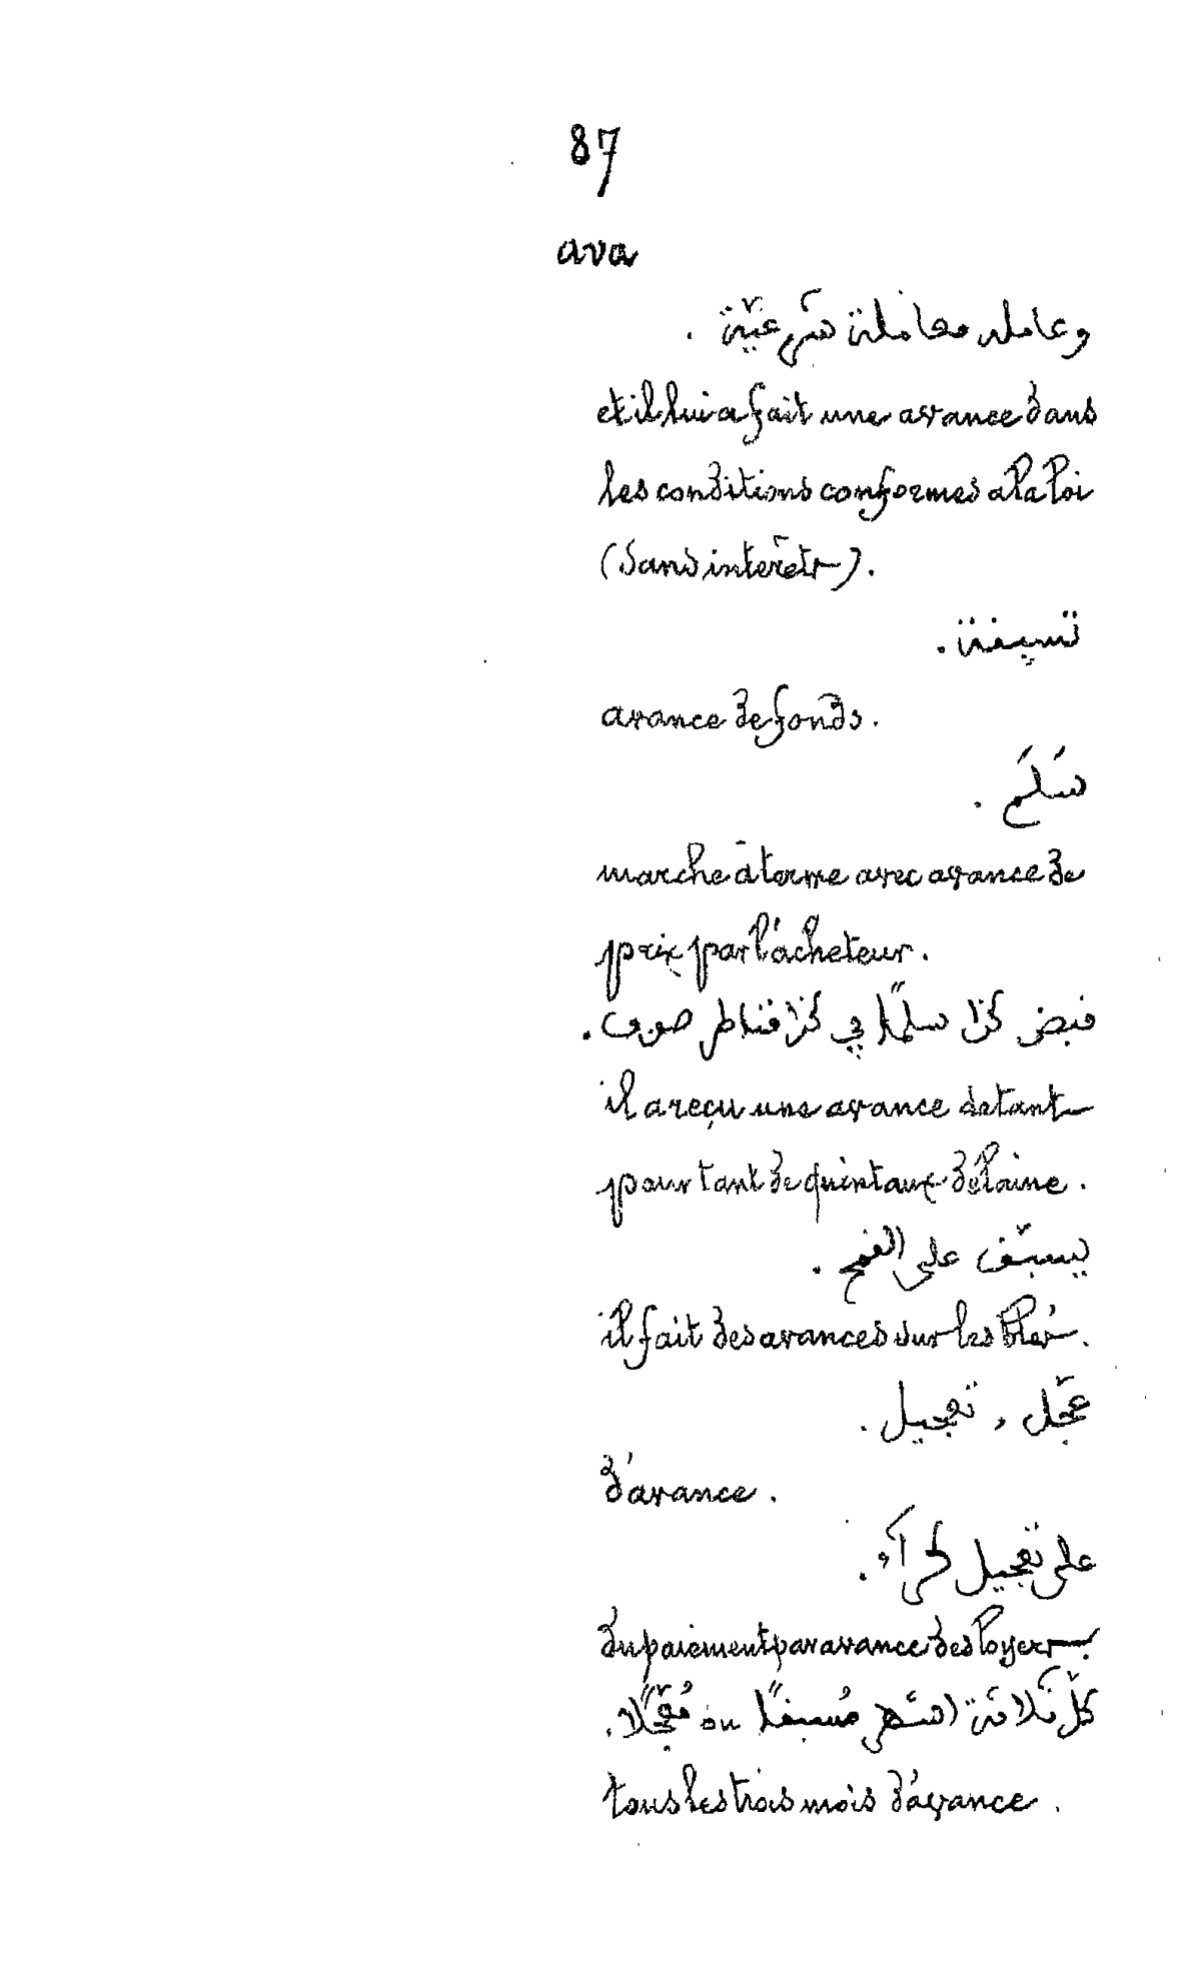 87
ava
وعامله معاملة شرعيّة .
et il lui a fait une avance dans
les conditions conformes a la loi
(sans intérêts).
تسبيفة .
avance de fonds.
سَلَم .
marche à terme avec avance de
prix par l'acheteur.
فبض كذا سلمًا في كذا فناطر صوف .
il a reçu une avance de tant
pour tant de quintaux de laine.
يسبّف على الفمح .
il fait des avances sur les blés.
عجّل , تعجيل .
d'avance.
على تعجيل كرآء .
du paiement par avance des loyers.
كلّ ثلاثة اشهر مُسبفًا ou مُعجّلًا .
tous les trois mois d'avance.